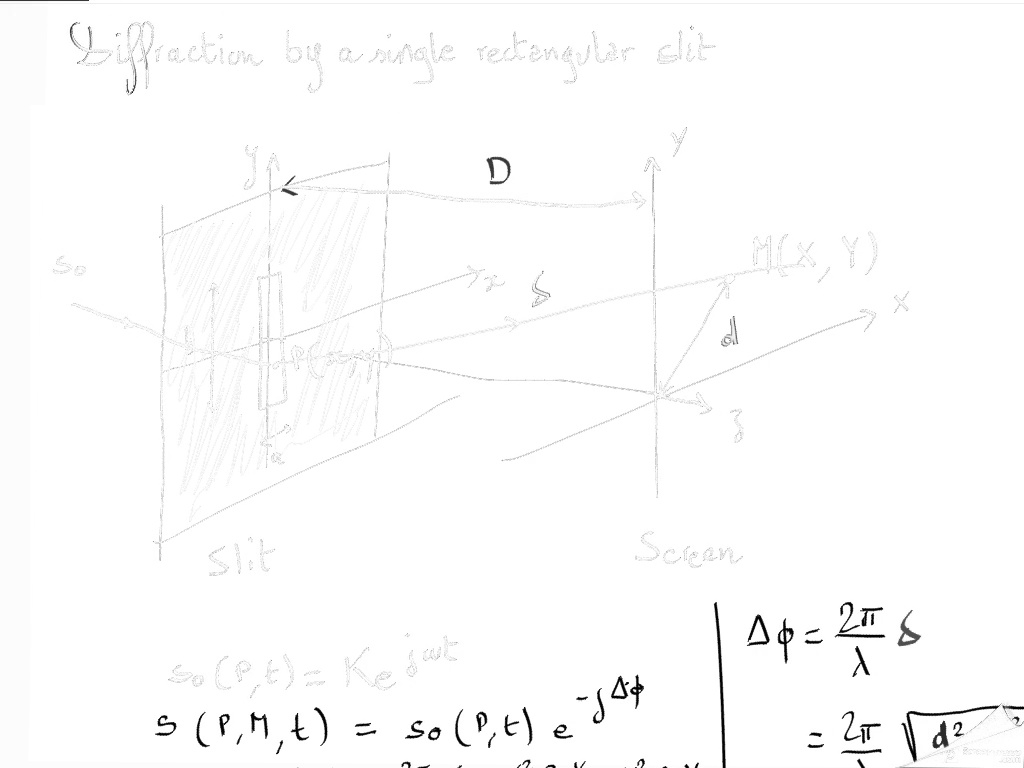 Diffraction by a single rectangular slit
y
D
Y
s₀
x
δ
M(X, Y)
X
b
P(x, y)
d
z
a
Slit
Screen
s₀(P,t) = K e^{jωt}
s(P,M,t) = s₀(P,t) e^{-jΔϕ}
Δϕ = 2π/λ δ
= 2π/λ √d²